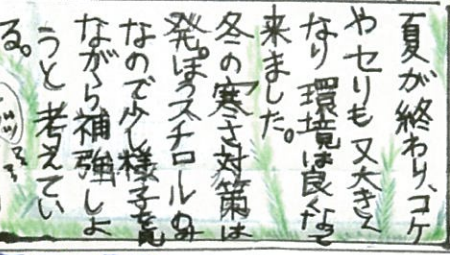 夏が終わり、コケ
やセリも又大きく
なり環境は良くなって
来ました。
冬の寒さ対策は
発ぽうスチロールのみ
なので少し様子を見
ながら補強しよ
うと考えてい
る。